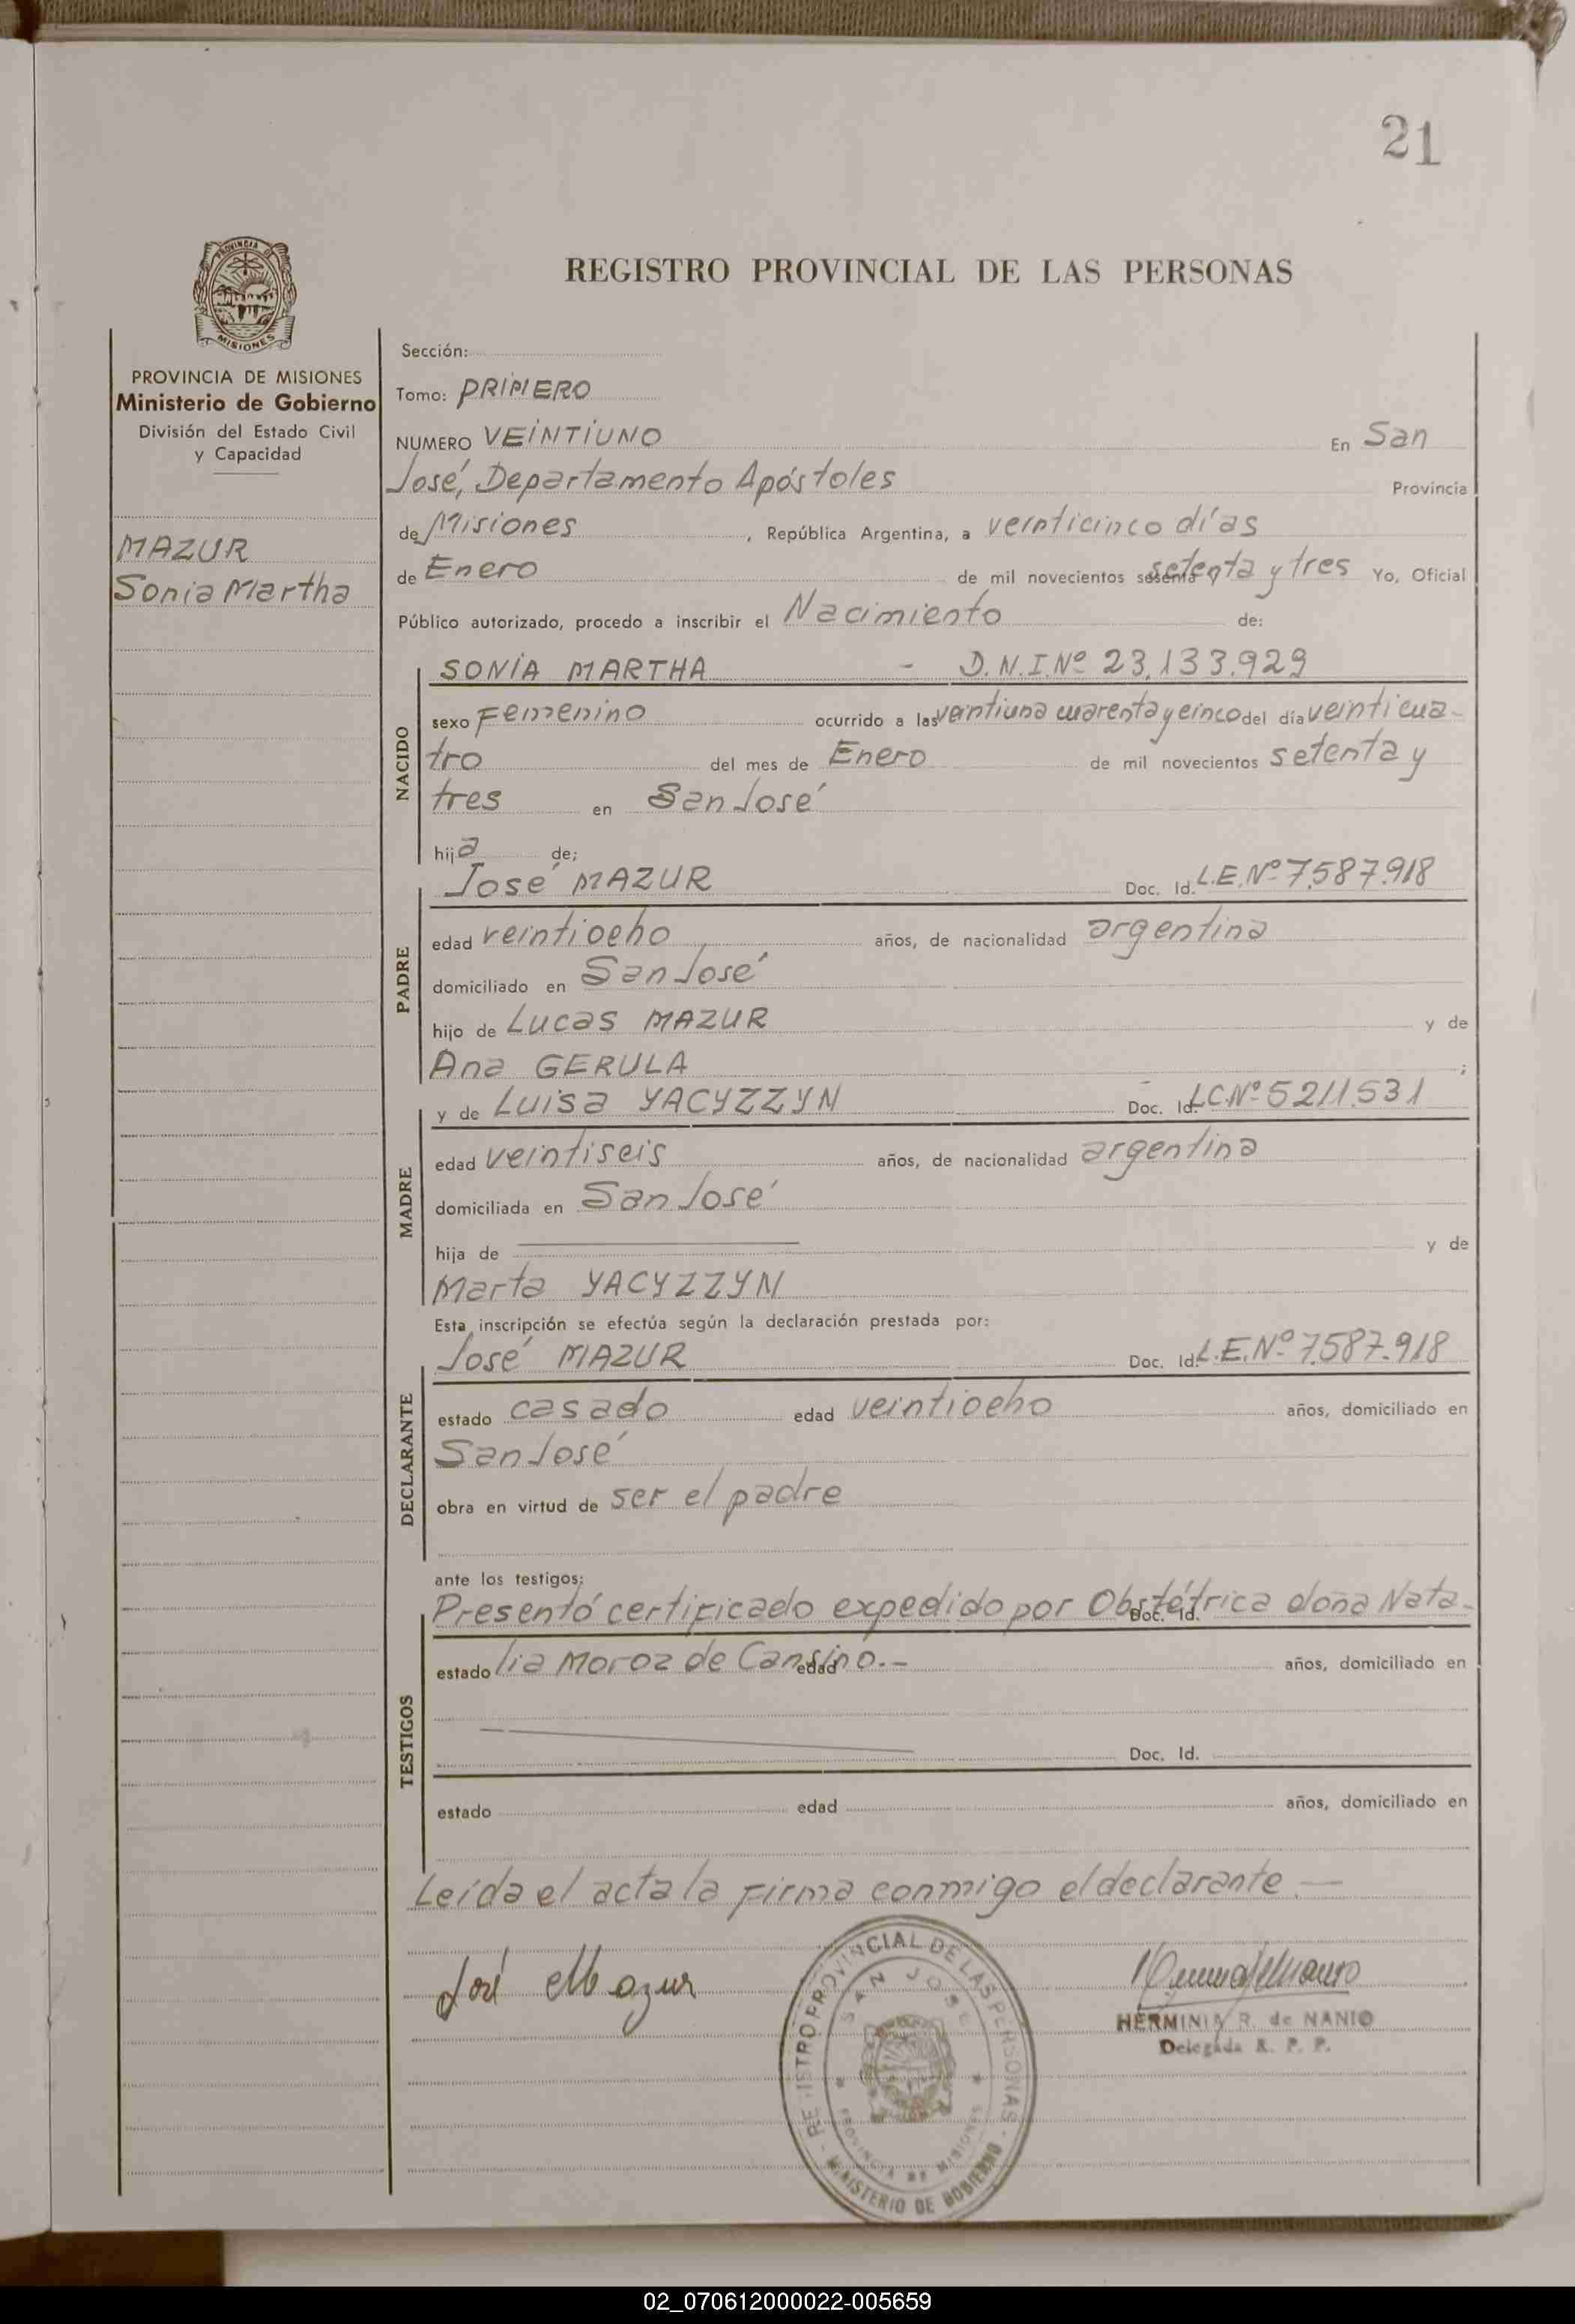 21
PROVINCIA DE
MISIONES
REGISTRO PROVINCIAL DE LAS PERSONAS
PROVINCIA DE MISIONES
Ministerio de Gobierno
División del Estado Civil
y Capacidad
MAZUR
Sonia Martha
Sección:
Tomo: PRIMERO
NUMERO VEINTIUNO En San
José, Departamento Apóstoles Provincia
de Misiones, República Argentina, a veinticinco días
de Enero de mil novecientos sesenta setenta y tres Yo, Oficial
Público autorizado, procedo a inscribir el Nacimiento de:
NACIDO
SONIA MARTHA - D.N.I.Nº 23.133.929
sexo Femenino ocurrido a las veintiuna cuarenta y cinco del día veinticua-
tro del mes de Enero de mil novecientos setenta y
tres en San José
hija de;
PADRE
José MAZUR Doc. Id. L.E.Nº 7.587.918
edad veintiocho años, de nacionalidad argentina
domiciliado en San José
hijo de Lucas MAZUR y de
Ana GERULA ;
MADRE
y de Luisa YACYZZYN Doc. Id. L.C.Nº 5.211.531
edad veintiseis años, de nacionalidad argentina
domiciliada en San José
hija de y de
Marta YACYZZYN
Esta inscripción se efectúa según la declaración prestada por:
DECLARANTE
José MAZUR Doc. Id. L.E.Nº 7.587.918
estado casado edad veintiocho años, domiciliado en
San José
obra en virtud de ser el padre
ante los testigos:
TESTIGOS
Presentó certificado expedido por Obstétrica doña Nata- Doc. Id.
estado lia Moroz de Cansino.- edad años, domiciliado en
Doc. Id.
estado edad años, domiciliado en
Leída el acta la firma conmigo el declarante.—
José Mazur
REGISTRO PROVINCIAL DE LAS PERSONAS
SAN JOSE
PROVINCIA DE MISIONES
MINISTERIO DE GOBIERNO
HERMINIA R. de NANIO
Delegada R. P. P.
02_070612000022-005659